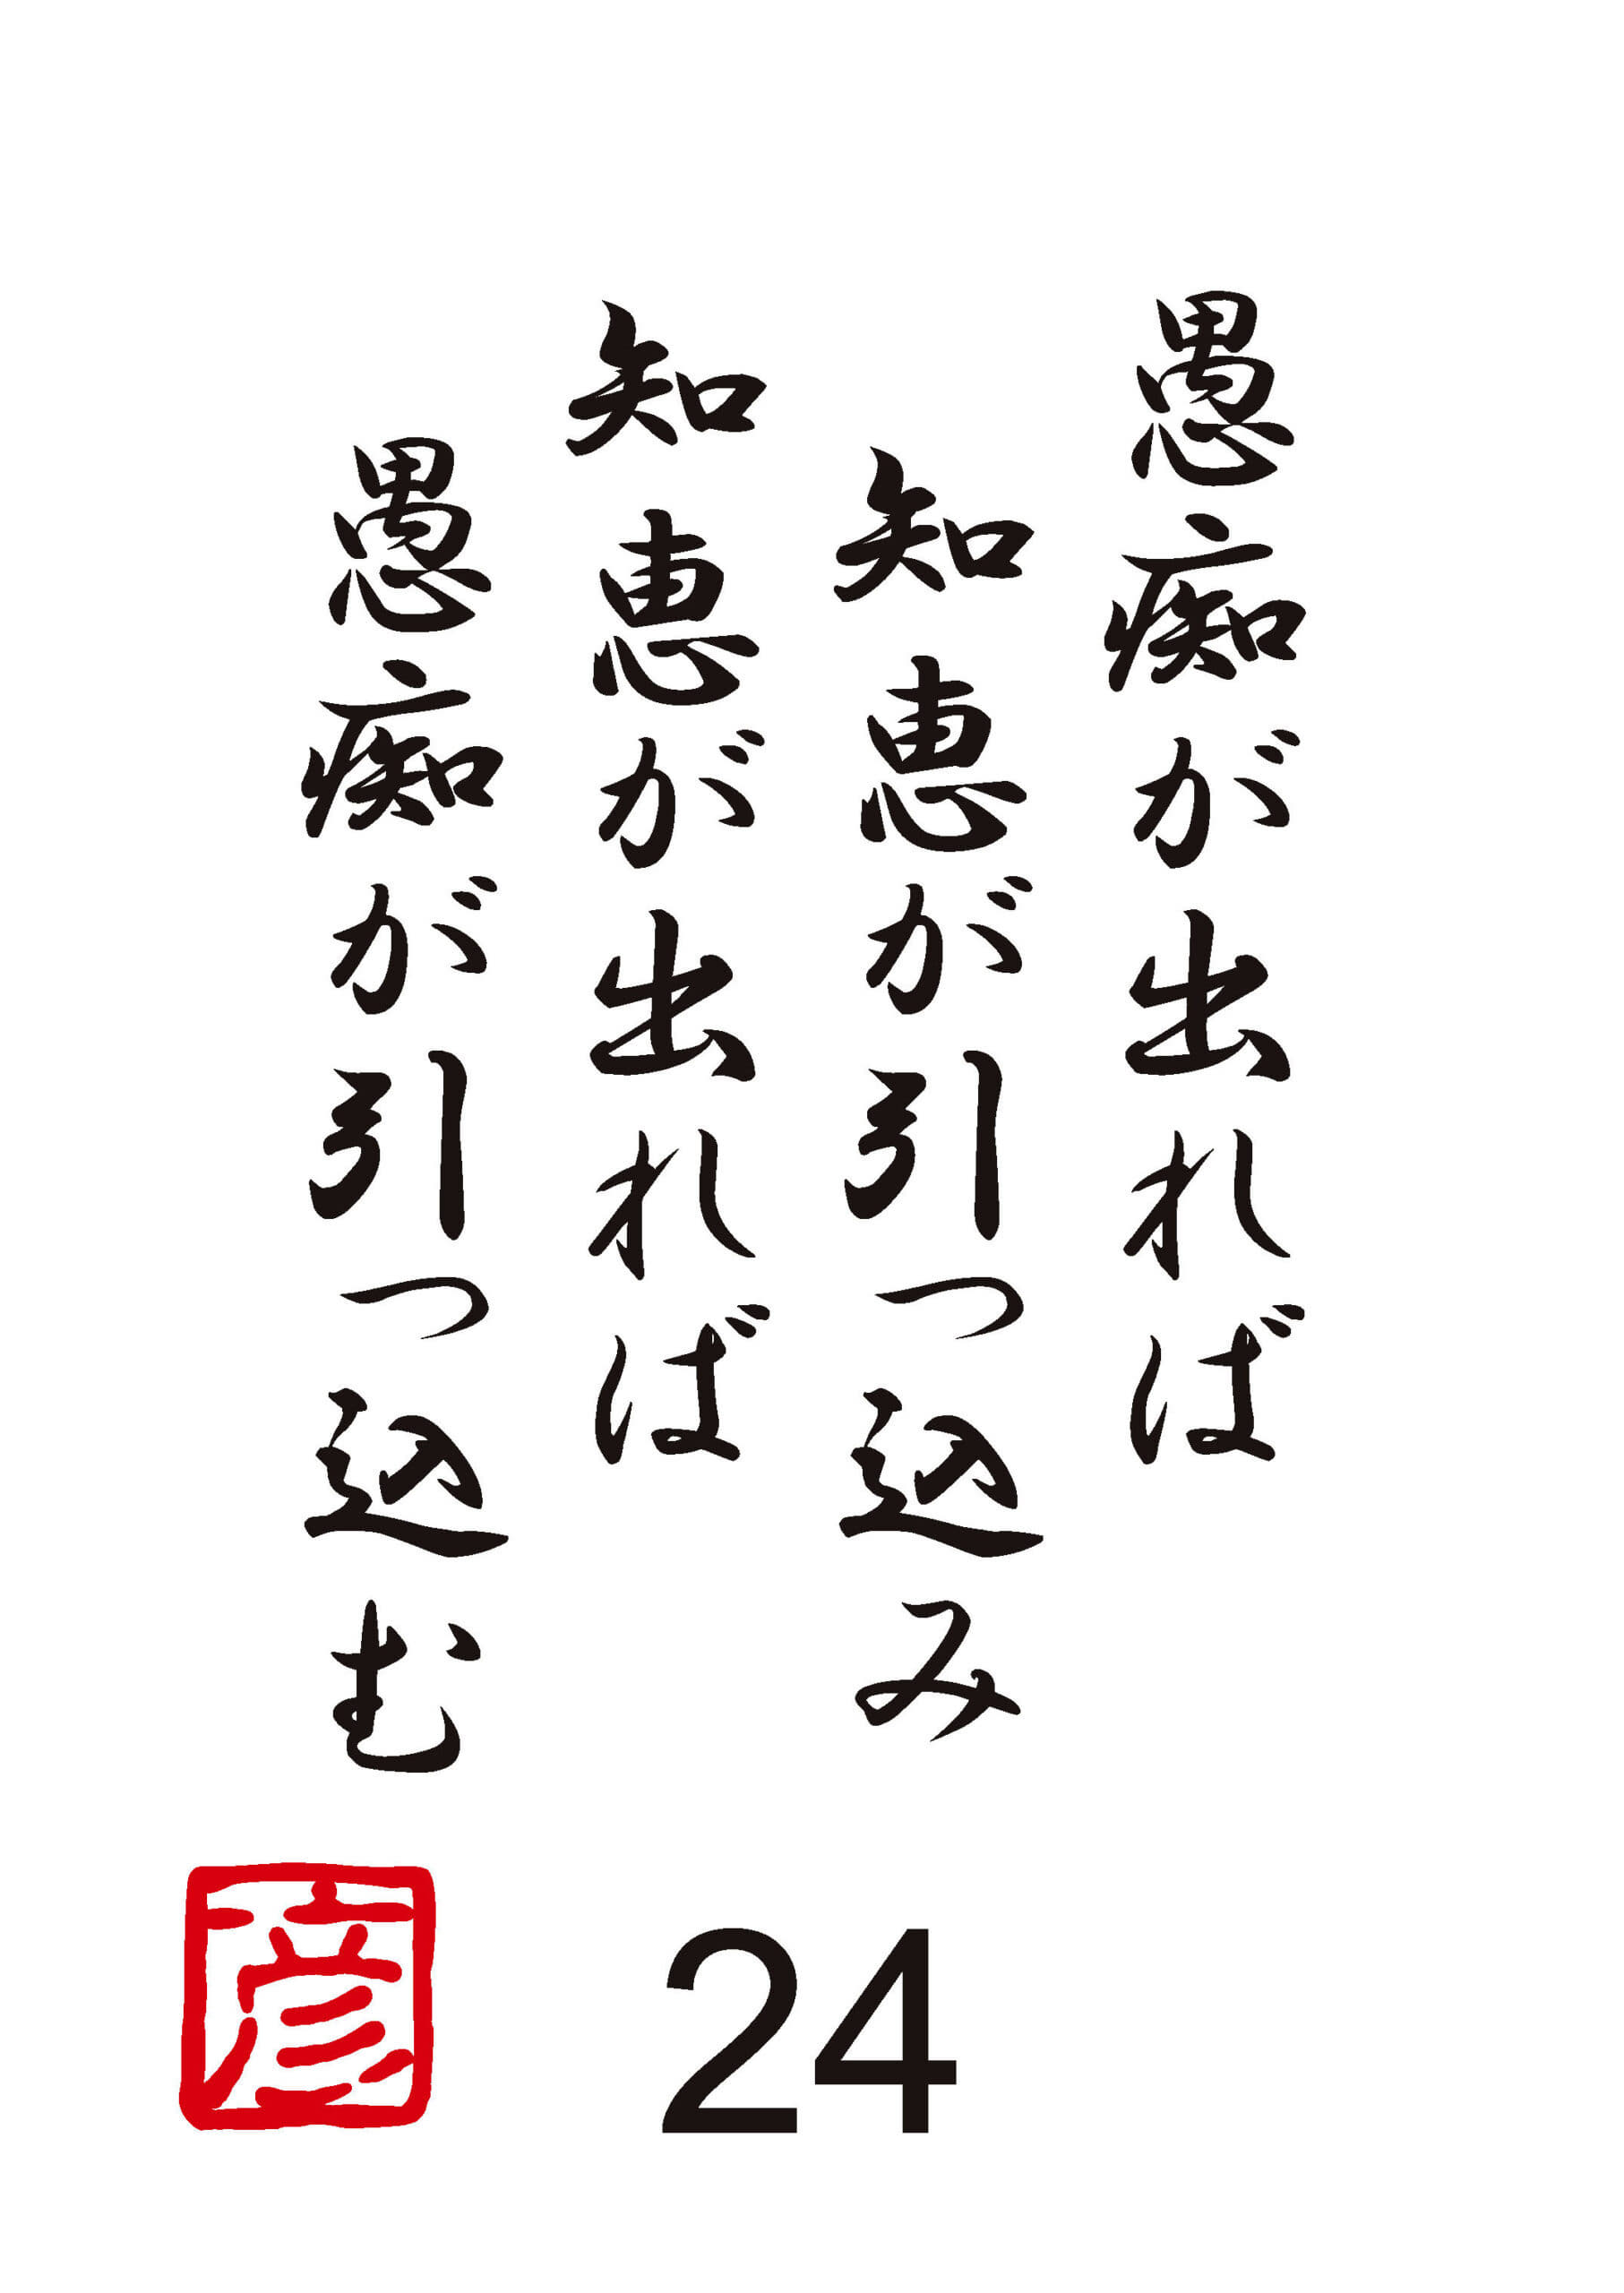 愚痴が出れば
知恵が引っ込み
知恵が出れば
愚痴が引っ込む
彦
24